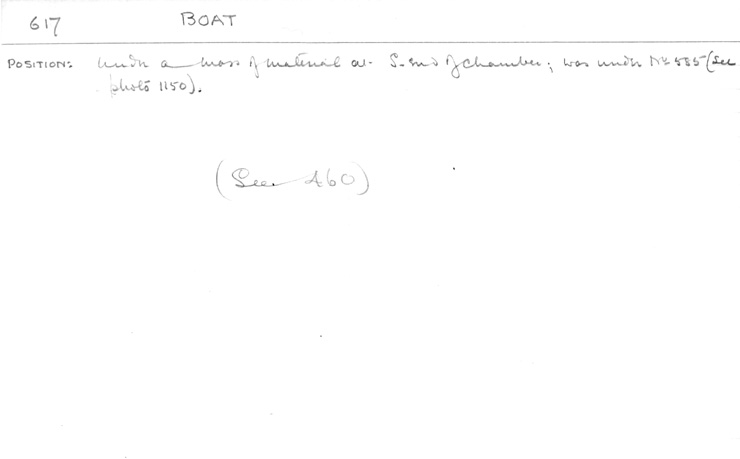 617 BOAT
POSITION: Under a mass of material at S. end of chamber; was under No 585 (see
photo 1150).
(See 460)